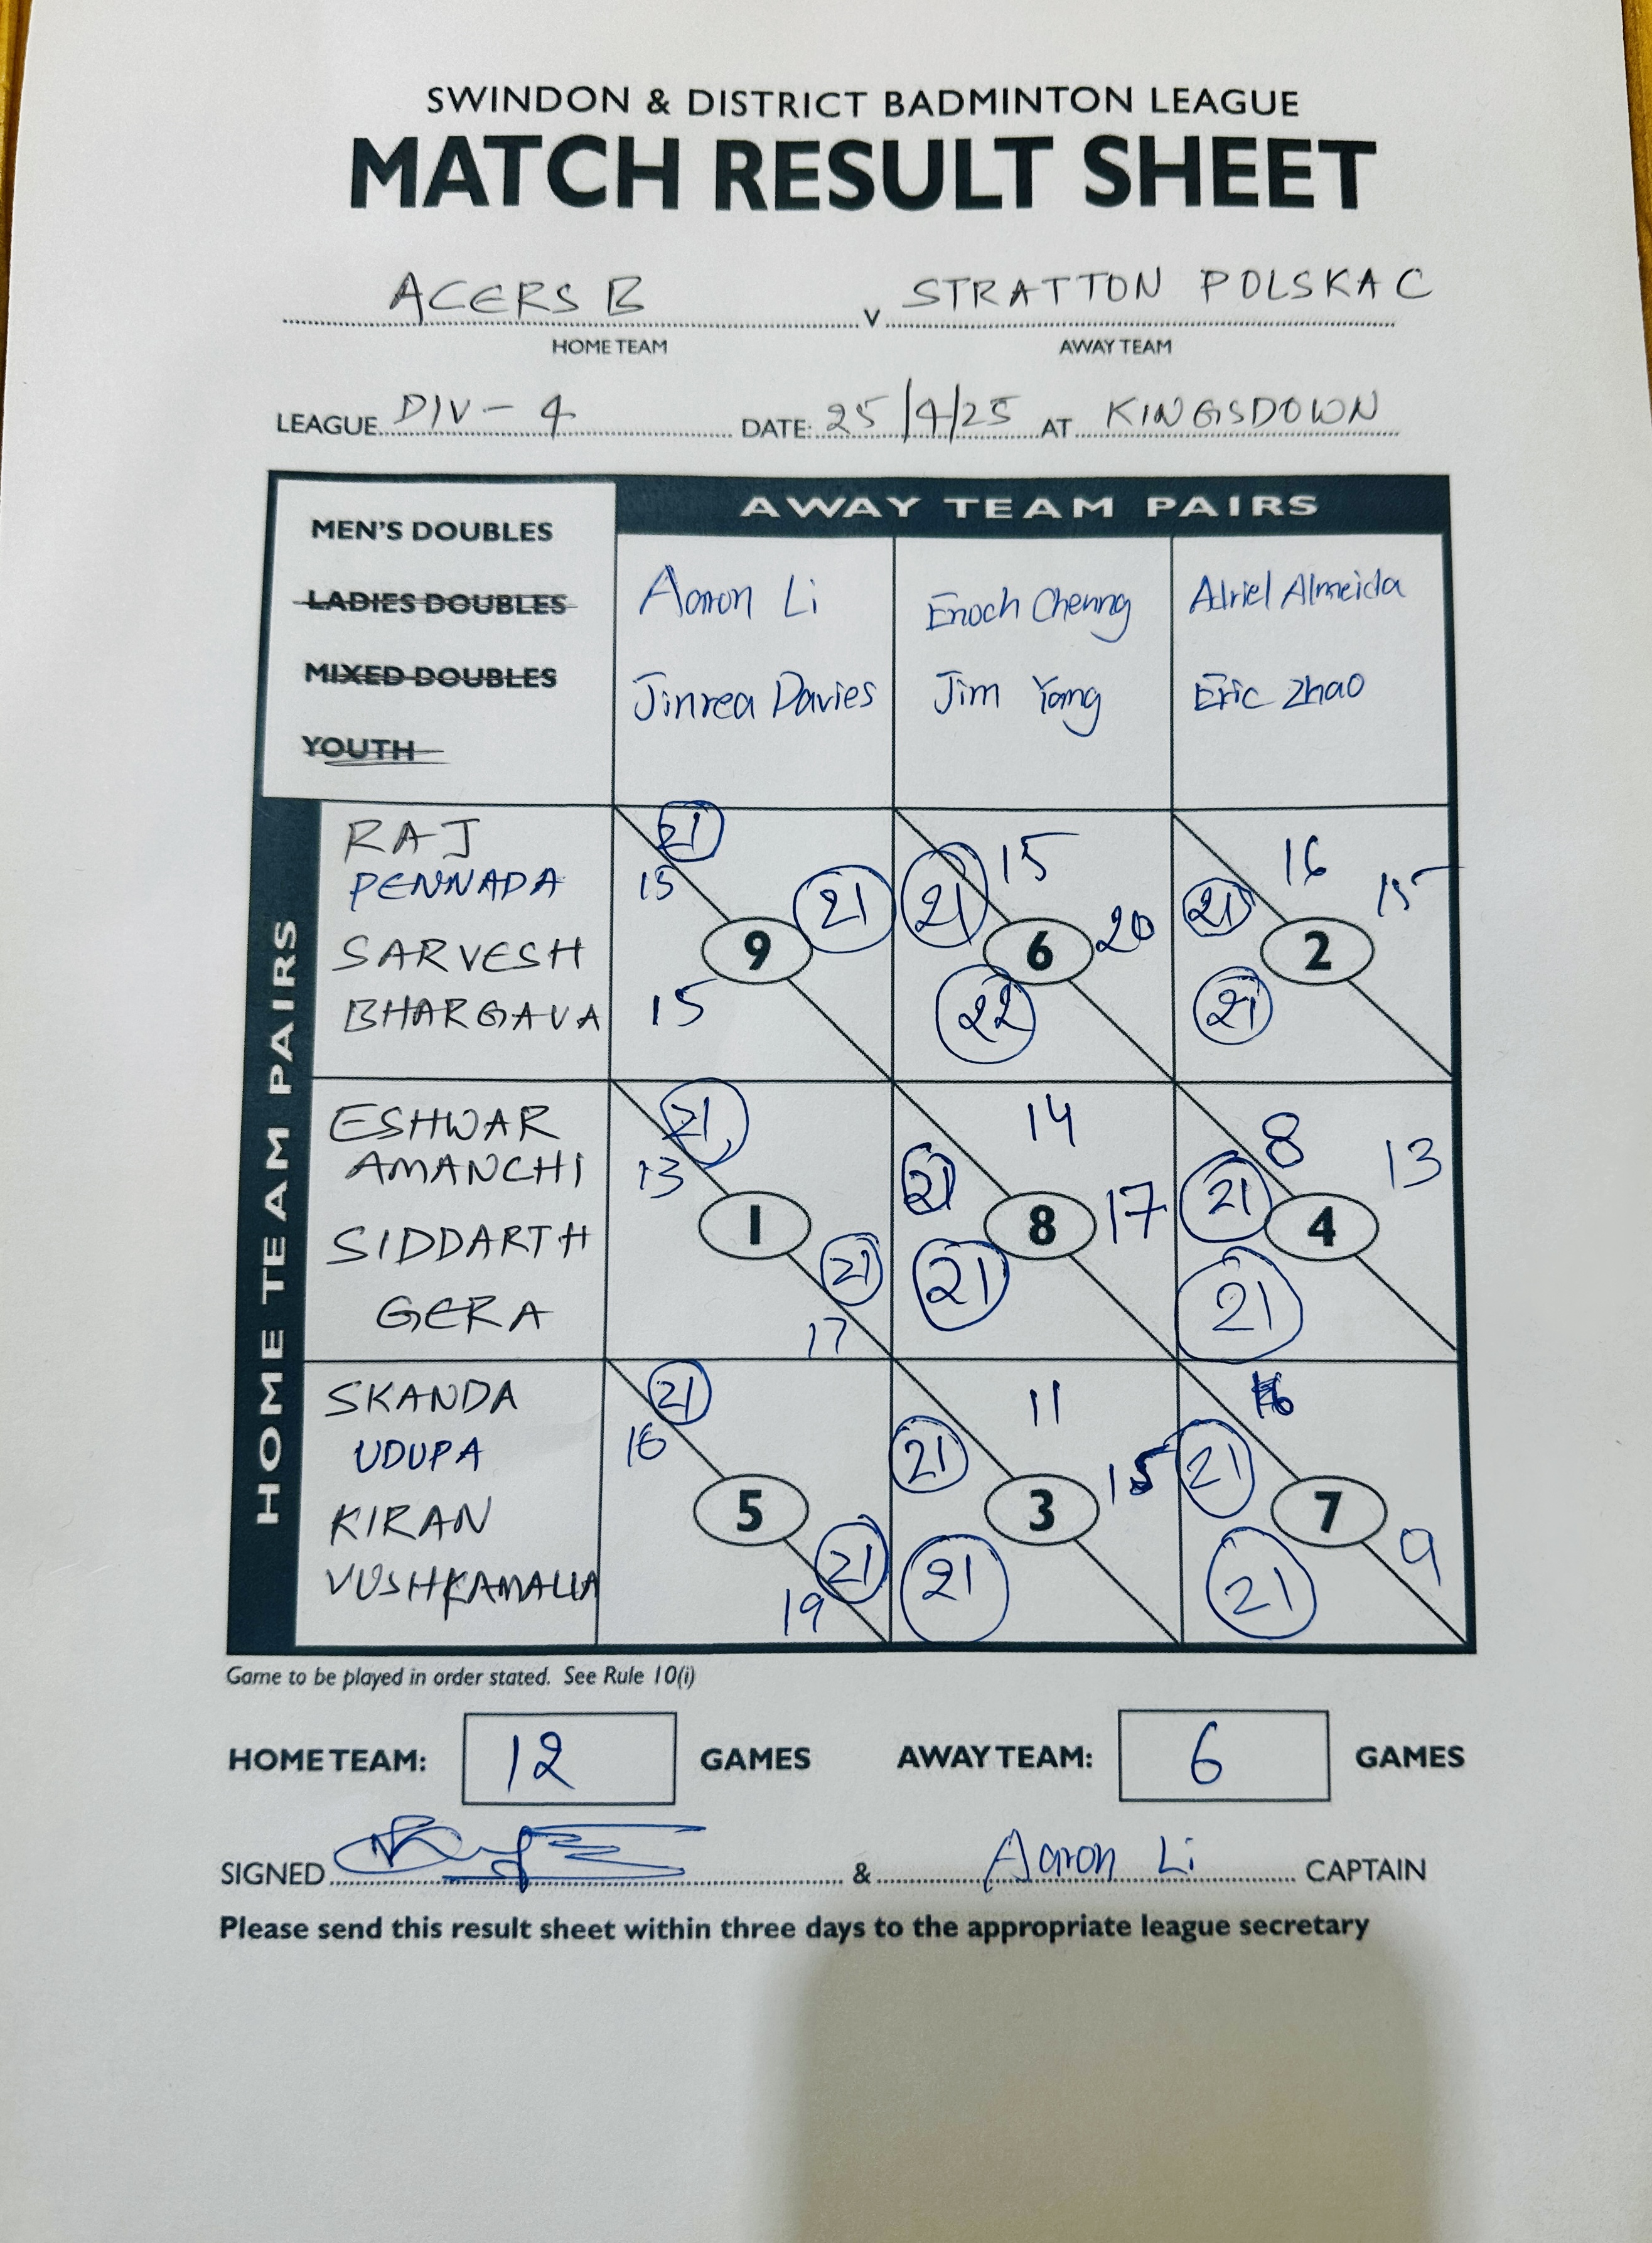 SWINDON & DISTRICT BADMINTON LEAGUE
MATCH RESULT SHEET
ACERS B v STRATTON POLSKA C
HOME TEAM AWAY TEAM
LEAGUE DIV - 4 DATE: 25/4/25 AT KINGSDOWN
MEN'S DOUBLES
LADIES DOUBLES
MIXED DOUBLES
YOUTH
AWAY TEAM PAIRS
Aaron Li
Jinrea Davies
Enoch Cheung
Jim Yang
Adriel Almeida
Eric Zhao
HOME TEAM PAIRS
RAJ
PENNADA
SARVESH
BHARGAVA
21
15
21
9
15
15
21
20
6
22
16
15
21
2
21
ESHWAR
AMANCHI
SIDDARTH
GERA
21
13
1
21
17
14
21
17
8
21
8
13
21
4
21
SKANDA
UDUPA
KIRAN
21
16
5
21
19
11
21
15
3
21
16
21
7
9
21
Game to be played in order stated. See Rule 10(i)
HOME TEAM: 12 GAMES AWAY TEAM: 6 GAMES
SIGNED & Aaron Li CAPTAIN
Please send this result sheet within three days to the appropriate league secretary